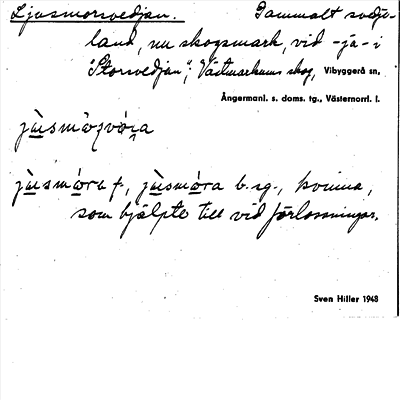 Ljusmorsvedjan. Gammalt svedje-
land, nu skogsmark, vid -ja- i
"Storsvedjan", Västmarkums skog, Vibyggerå sn.
Ångermanl. s. doms. tg., Västernorrl. l.
f., b. sg., kvinna,
som hjälpte till vid förlossningar.
Sven Hiller 1948